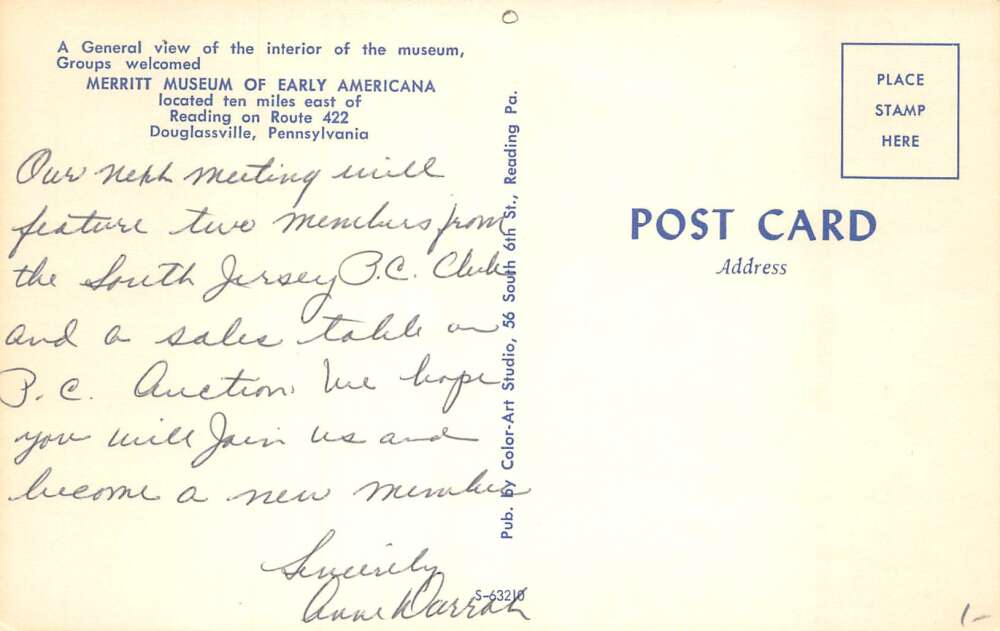 A General view of the interior of the museum,
Groups welcomed
MERRITT MUSEUM OF EARLY AMERICANA
located ten miles east of
Reading on Route 422
Douglassville, Pennsylvania
Our next meeting will
feature two members from
the South Jersey P.C. Club
and a sales table on
P.C. Auction. We hope
you will Join us and
become a new member
Sincerely
Anne Darrah
Pub. by Color-Art Studio, 56 South 6th St., Reading Pa.
S-63210
PLACE
STAMP
HERE
POST CARD
Address
1-